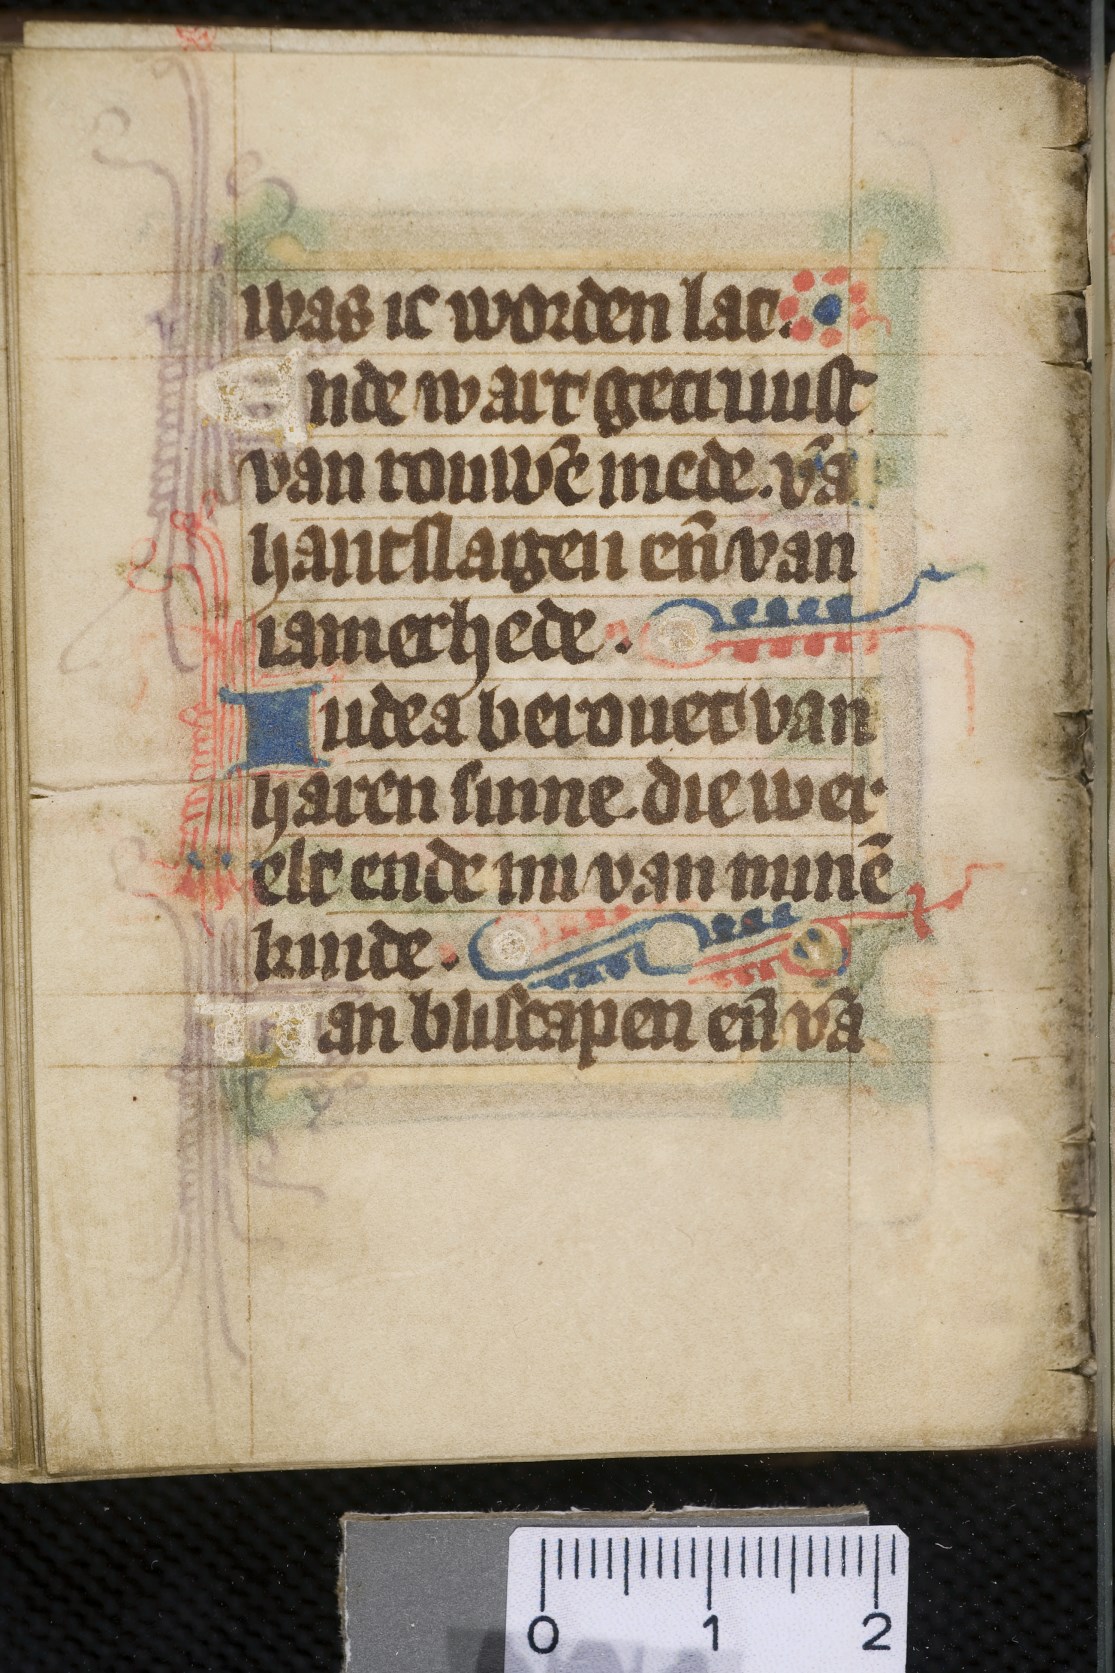 was ic worden lac.
Ende wart gecruust
van rouwē mede. vā
hantslagen en̄ van
iamerhede.
Iudea berouet van
haren sinne. die wer
elt ende mi van minē
kinde.
Van bliscapen en̄ vā
0 1 2